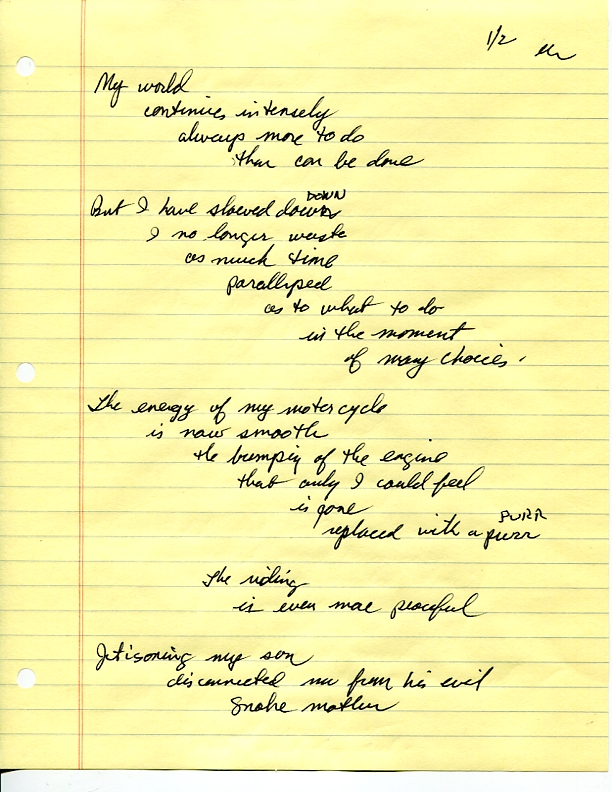 1/2
My world
continues intensely
always more to do
than can be done
DOWN
But I have slowed down
I no longer waste
as much time
parallyped
as to what to do
in the moment
of many choices.
The energy of my motorcycle
is now smooth
the bumpig of the engine
that only I could feel
is gone
PURR
replaced with a purr
The riding
is even more peaceful
Jetisoning my son
disconnected me from his evil
Snake mother